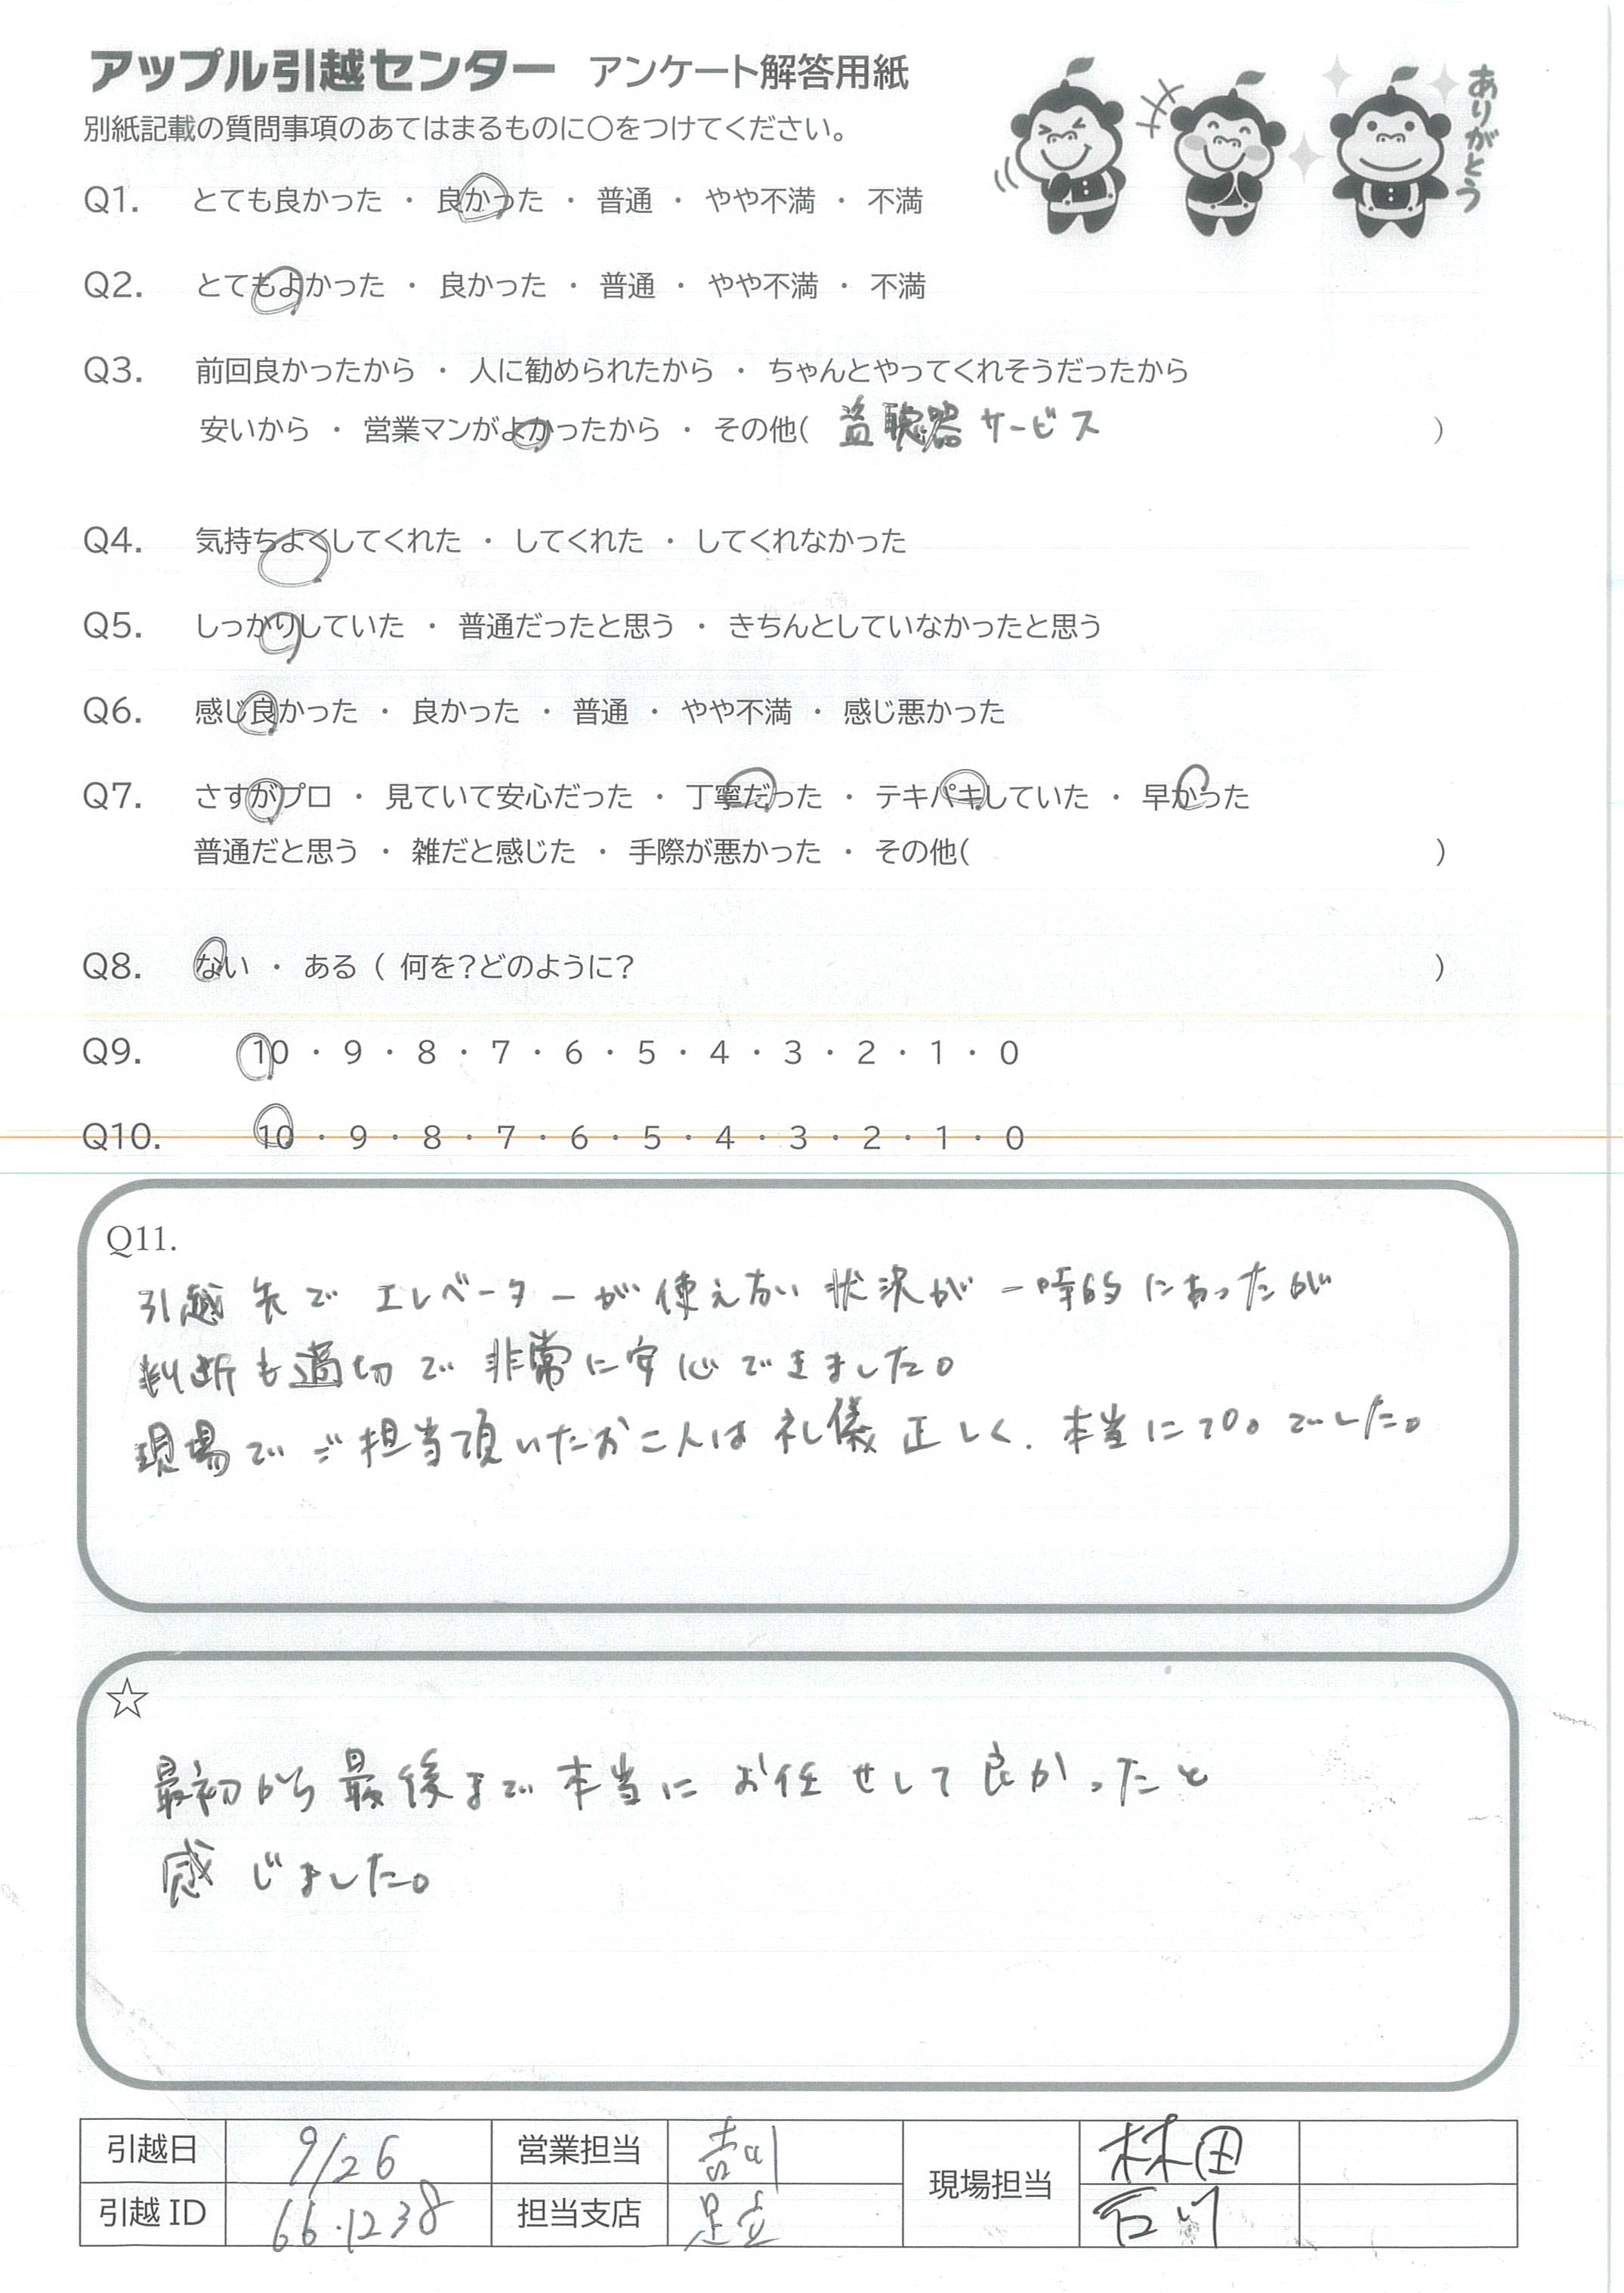 アップル引越センター アンケート解答用紙
別紙記載の質問事項のあてはまるものに○をつけてください。
ありがとう
Q1. とても良かった ・ 良かった ・ 普通 ・ やや不満 ・ 不満
Q2. とてもよかった ・ 良かった ・ 普通 ・ やや不満 ・ 不満
Q3. 前回良かったから ・ 人に勧められたから ・ ちゃんとやってくれそうだったから
安いから ・ 営業マンがよかったから ・ その他( 盗聴器サービス )
Q4. 気持ちよくしてくれた ・ してくれた ・ してくれなかった
Q5. しっかりしていた ・ 普通だったと思う ・ きちんとしていなかったと思う
Q6. 感じ良かった ・ 良かった ・ 普通 ・ やや不満 ・ 感じ悪かった
Q7. さすがプロ ・ 見ていて安心だった ・ 丁寧だった ・ テキパキしていた ・ 早かった
普通だと思う ・ 雑だと感じた ・ 手際が悪かった ・ その他( )
Q8. ない ・ ある ( 何を?どのように? )
Q9. 10 ・ 9 ・ 8 ・ 7 ・ 6 ・ 5 ・ 4 ・ 3 ・ 2 ・ 1 ・ 0
Q10. 10 ・ 9 ・ 8 ・ 7 ・ 6 ・ 5 ・ 4 ・ 3 ・ 2 ・ 1 ・ 0
Q11.
引越先でエレベーターが使えない状況が一時的にあったが
判断も適切で非常に安心できました。
現場でご担当頂いたお二人は礼儀正しく、本当にプロでした。
☆
最初から最後まで本当にお任せして良かったと
感じました。
引越日 9/26 営業担当 吉川 現場担当 林田
引越ID 66.1238 担当支店 足立 石川